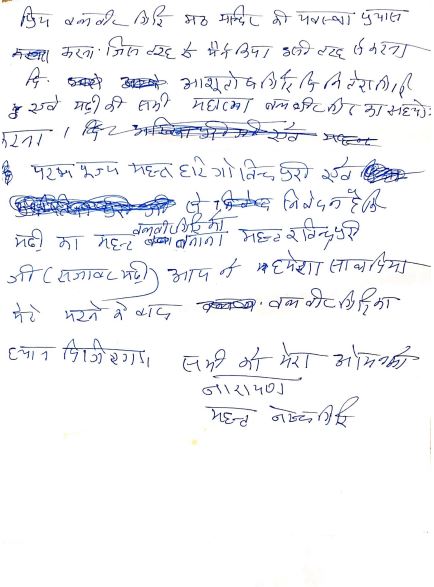 प्रिय बलवीर गिरि मठ मन्दिर की व्यवस्था प्रयास
करना जिस तरह से मैंने किया उसी तरह से करना
आशुतोष गिरि नितेश गिरि
एवं मढ़ी के सभी महात्मा बलवीर गिरि का सहयोग
करना।
परम पूज्य महन्त हरि गोविन्द पुरी एवं
से निवेदन है कि
मढ़ी का महन्त बलवीर गिरि को बनाना। महन्त रविन्द्र पुरी
जी (सजावट मढ़ी) आप ने हमेशा साथ दिया
मेरे मरने के बाद बलवीर गिरि का
ध्यान दीजिएगा। सभी को मेरा ओम नमो
नारायण
महन्त नरेन्द्र गिरि